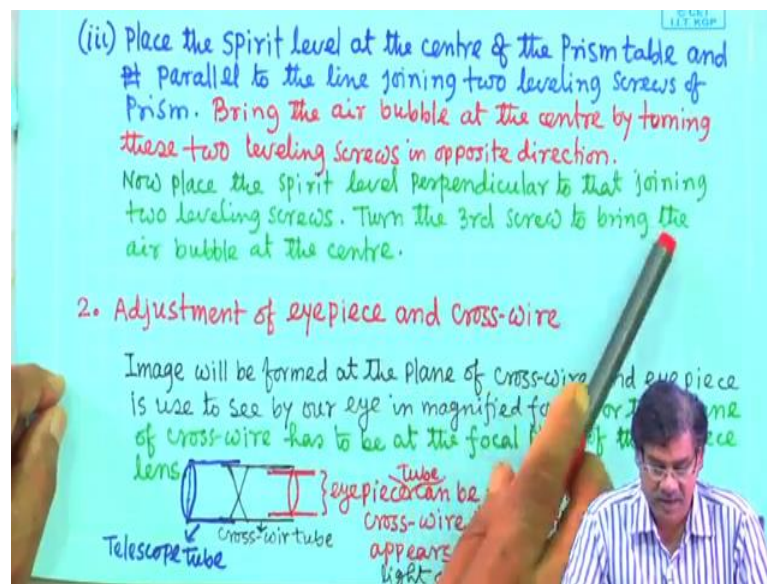 © CET
I.I.T. KGP
(iii) Place the spirit level at the centre of the Prism table and
parallel to the line joining two leveling screws of
Prism. Bring the air bubble at the centre by turning
these two leveling screws in opposite direction.
Now place the spirit level perpendicular to that joining
two leveling screws. Turn the 3rd screw to bring the
air bubble at the centre.
2. Adjustment of eyepiece and cross-wire
Image will be formed at the plane of cross-wire and eyepiece
is use to see by our eye in magnified
of cross-wire has to be at the focal of
lens
Tube
eyepiece can be
cross-wire
appears
light
Telescope tube
cross-wir tube